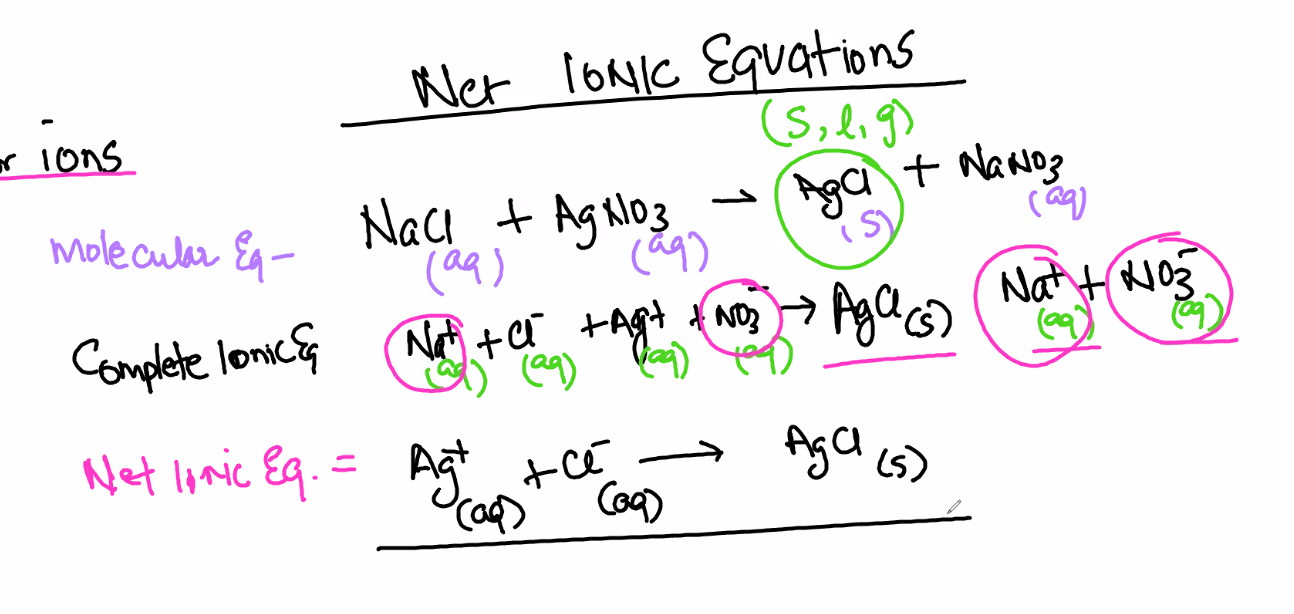 Net Ionic Equations
(s, l, g)
ions
Molecular Eq – NaCl (aq) + AgNO3 (aq) → AgCl (s) + NaNO3 (aq)
Complete Ionic Eq Na+ (aq) + Cl- (aq) + Ag+ (aq) + NO3- (aq) → AgCl (s) Na+ (aq) + NO3- (aq)
Net Ionic Eq. = Ag+ (aq) + Cl- (aq) → AgCl (s)